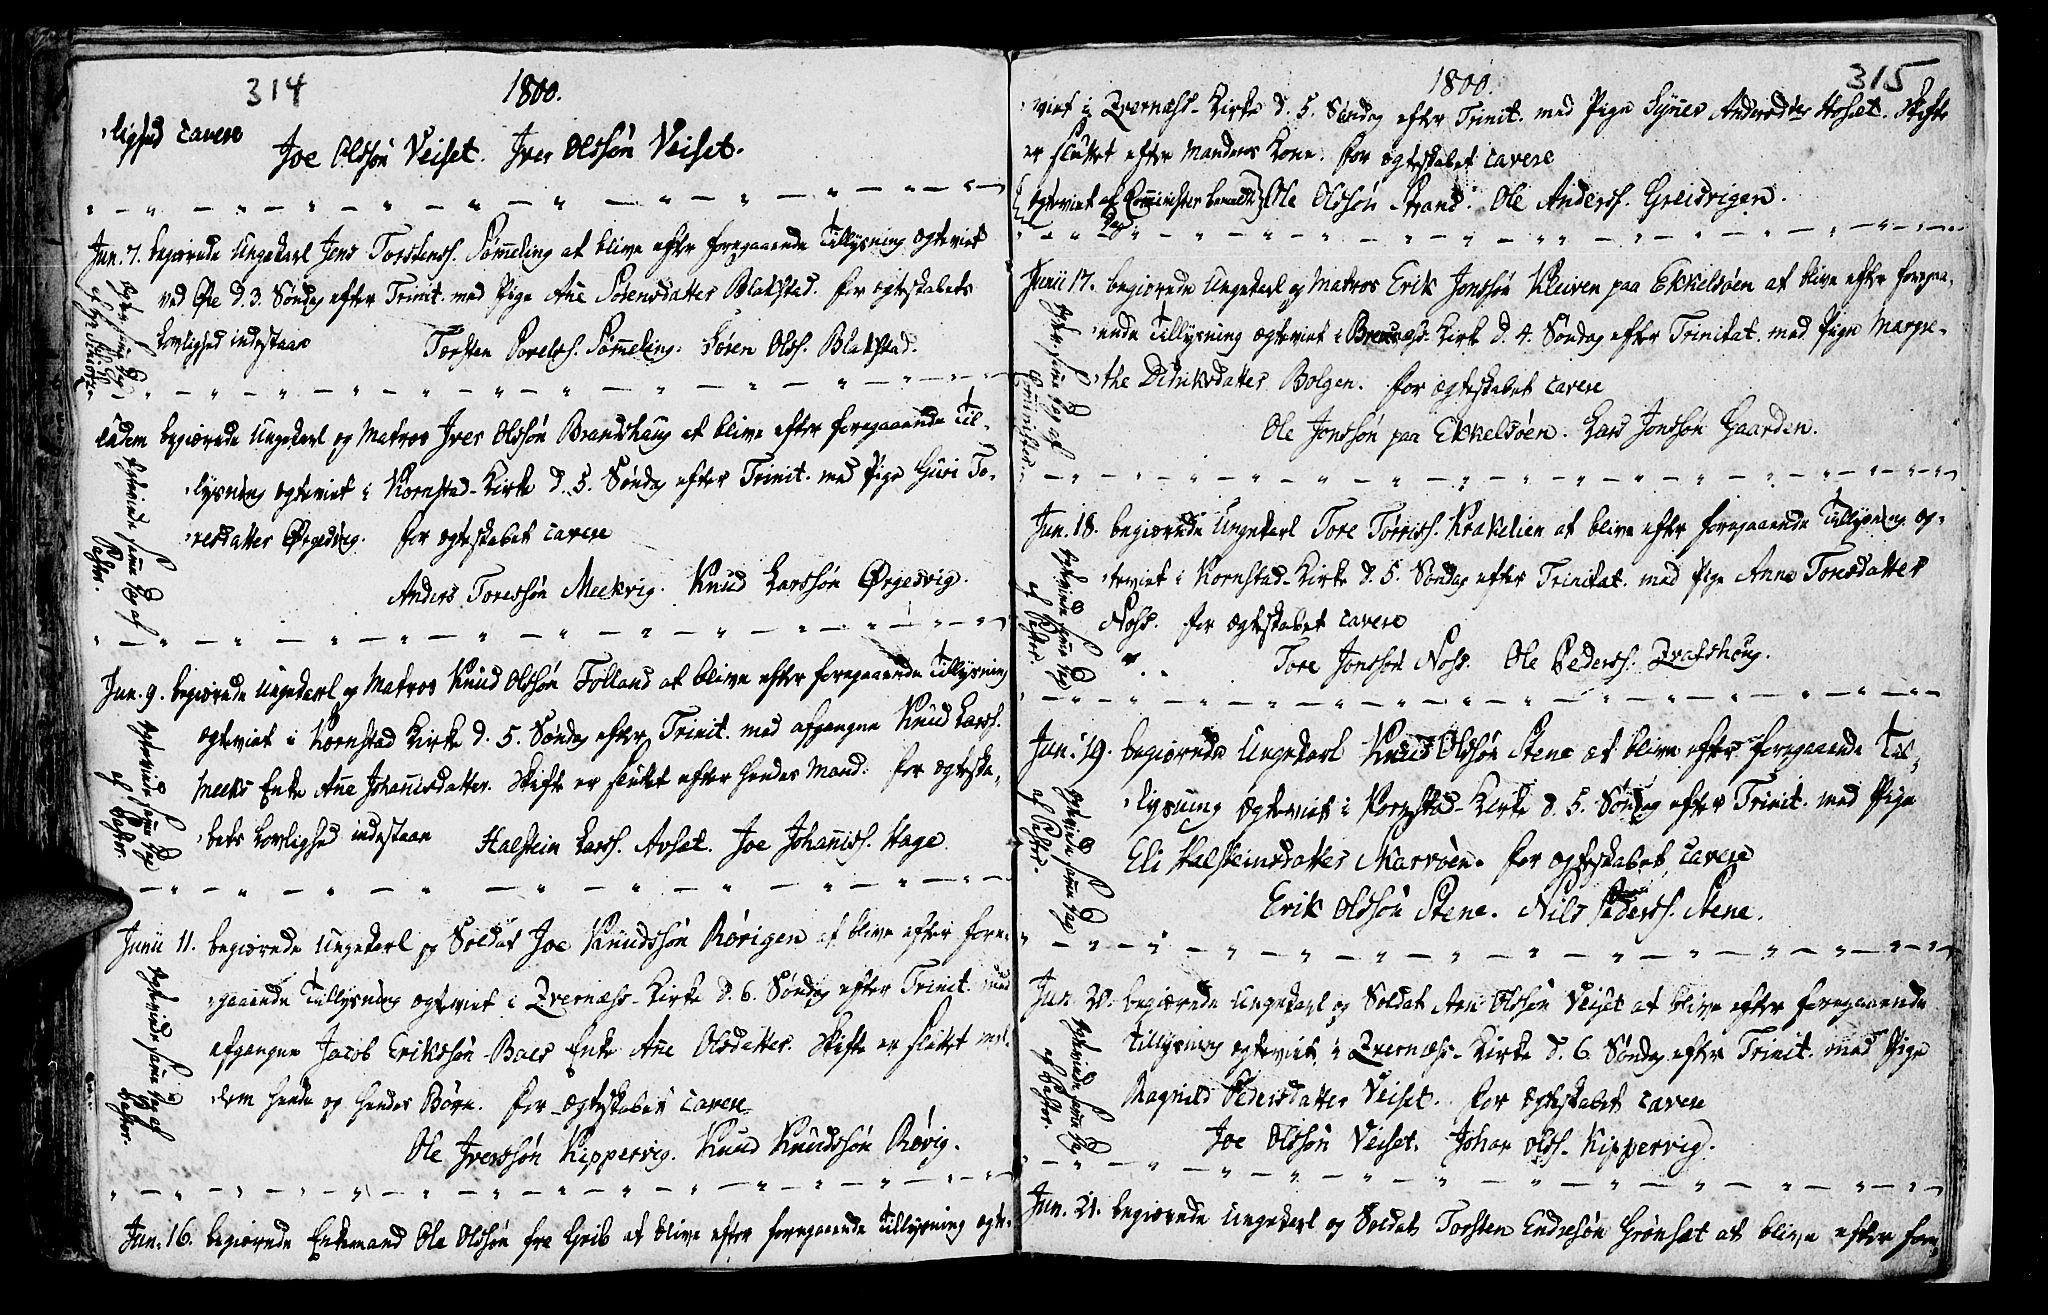 314
1800.
lighed cavere
Joe Olssøn Veiset. Iver Olssøn Veiset.
Jun. 7. begiærede Ungekarl Jens Torstens. Sømmeling at blive efter foregaaende Tillysning ægteviet
ved Øre d. 3. Søndag efter Trinit. med Pige Ane Sørensdatter Blakstad. for ægteskabets
Lovlighed indestaar
Torsten Porels. Sømmeling. Søren Ols. Blakstad.
eodem begiærede Ungekarl og Matros Iver Olssøn Brandshaug at blive efter foregaaende Til-
lysning ægteviet i Kornstad-Kirke d. 5. Søndag efter Trinit. med Pige Guri To-
resdatter Ørgedvig. for ægteskabet cavere
ægteviede samme Dag af
Pastor.
Anders Toressøn Meekvig. Knud Larssøn Ørgesvig.
Jun. 9. begiærede Ungekarl og Matros Knud Olssøn Folland at blive efter foregaaende Tillysning
ægteviet i Kornstad Kirke d. 5. Søndag efter Trinit. med afgangne Knud Larss.
Meeks Enke Ane Johanisdatter. Skifte er sluttet efter hendes Mand. for ægteska-
bets Lovlighed indestaar
Halstein Larss. Avset. Joe Johaniss. Hage.
ægteviede samme Dag
af Pastor.
Junii 11. begiærede Ungekarl og Soldat Joe Knudssøn Rørigen at blive efter fore-
gaaende Tillysning ægteviet i Qvernæss-Kirke d. 6. Søndag efter Trinit. med
afgangne Jacob Erikssøn Baes Enke Ane Olsdatter. Skifte er sluttet mel-
lem hende og hendes Børn. for ægteskabet cavere
ægteviede samme Dag af
Pastor.
Ole Iverssøn Kippervig. Knud Knudssøn Røvig.
Jun. 16. begiærede Enkemand Ole Olssøn fra Grib at blive efter foregaaende Tillysning ægte-
315
1800.
viet i Qvernæss-Kirke d. 5. Søndag efter Trinit. med Pige Synev Andersdter Hoset. Skifte
er sluttet efter Mandens Kone. for ægteskabet cavere
ægteviet af Comminister samme Dag
Ole Olssøn Strand. Ole Anderss. Greisvigen.
Junii 17. begiærede Ungekarl og Matros Erik Jonssøn Kleiven paa Ekkelsøen at blive efter foregaa-
ende Tillysning ægteviet i Kirke d. 4. Søndag efter Trinitat. med Pige Margre-
the Didriksdatter Bolgen. for ægteskabet cavere
Ole Jonssøn paa Ekkelsøen. Lars Jonssøn Gaarden.
Jun. 18. begiærede Ungekarl Tore Torriss. Krakelien at blive efter foregaaende Tillysning æg-
teviet i Kornstad-Kirke d. 5. Søndag efter Trinitat. med Pige Anne Toresdatter
Noss. for ægteskabet cavere
ægteviede samme Dag
af Pastor.
Tore Jonssøn Noss. Ole Pederss. Qvatshaug.
Jun. 19. begiærede Ungekarl Knud Olssøn Stene at blive efter foregaaende Til-
lysning ægteviet i Kornstad-Kirke d. 5. Søndag efter Trinit. med Pige
Eli Halsteinsdatter Marvøen. for ægteskabet cavere
ægteviede samme Dag
af Pastor.
Erik Olssøn Stene. Nils Pederss. Stene.
Jun. 20. begiærede Ungekarl og Soldat Arn Olssøn Veiset at blive efter foregaaende
Tillysning ægteviet i Qvernæss-Kirke d. 6. Søndag efter Trinit. med Pige
Ragnild Pedersdatter Veiset. for ægteskabet cavere
ægteviede samme Dag
af Pastor.
Joe Olssøn Veiset. Johan Ols. Kippervig.
Jun. 21. begiærede Ungekarl og Soldat Torsten Endresøn Grønset at blive efter fore-